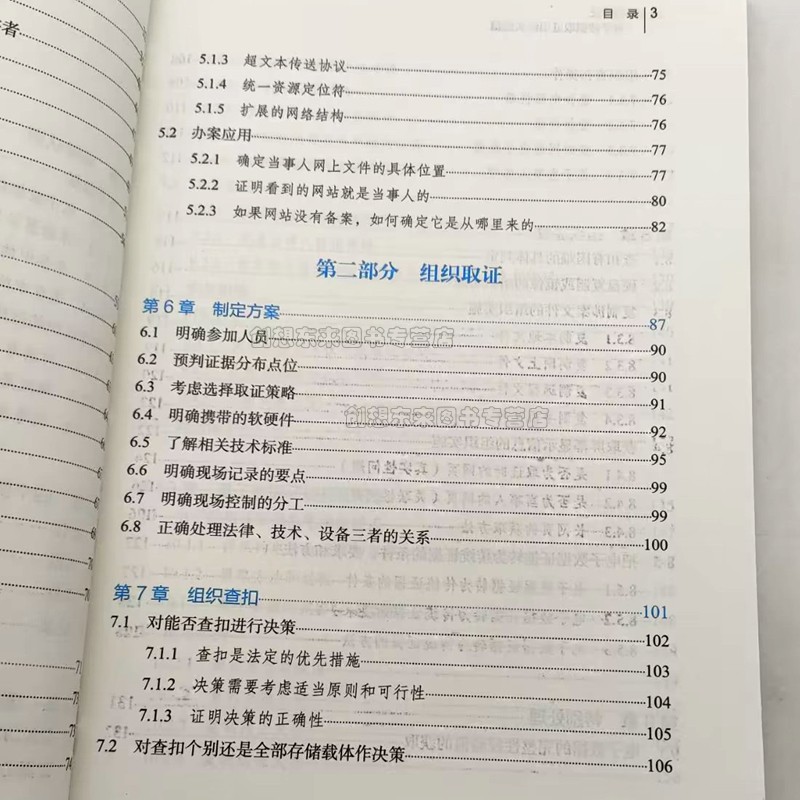 目 录 3
5.1.3 超文本传送协议 75
5.1.4 统一资源定位符 76
5.1.5 扩展的网络结构 76
5.2 办案应用 77
5.2.1 确定当事人网上文件的具体位置 77
5.2.2 证明看到的网站就是当事人的 80
5.2.3 如果网站没有备案，如何确定它是从哪里来的 82
第二部分 组织取证
第6章 制定方案 87
6.1 明确参加人员 90
创想东来图书专营店
6.2 预判证据分布点位 90
6.3 考虑选择取证策略 91
6.4 明确携带的软硬件 92
创想东来图书专营店
6.5 了解相关技术标准 95
6.6 明确现场记录的要点 99
6.7 明确现场控制的分工 99
6.8 正确处理法律、技术、设备三者的关系 100
第7章 组织查扣 101
7.1 对能否查扣进行决策 102
7.1.1 查扣是法定的优先措施 103
7.1.2 决策需要考虑适当原则和可行性 104
7.1.3 证明决策的正确性 105
7.2 对查扣个别还是全部存储载体作决策 106